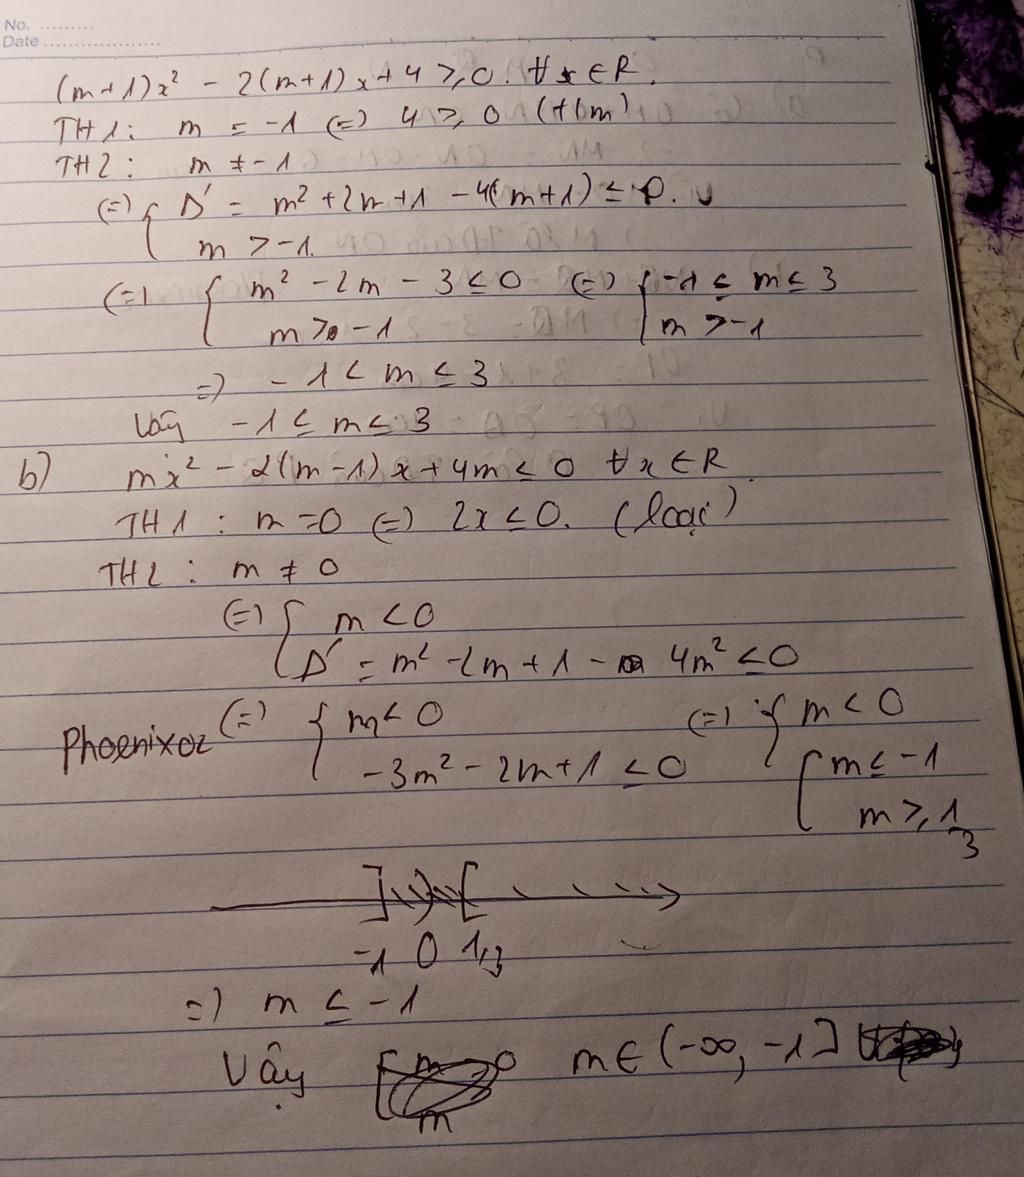 No. .........
Date ...................
(m+1)x² - 2(m+1)x+4 ≥ 0. ∀x∈R.
TH1: m = -1 (=) 4 ≥ 0 (t/m)
TH2: m ≠ -1
(=) { Δ' = m² + 2m + 1 - 4(m+1) ≤ 0.
m > -1.
(=) { m² - 2m - 3 ≤ 0 (=) { -1 ≤ m ≤ 3
m > -1 m > -1
=) -1 < m ≤ 3
Vậy -1 ≤ m ≤ 3
b) mx² - 2(m-1)x + 4m ≤ 0 ∀x∈R.
TH1: m = 0 (=) 2x ≤ 0. (loại)
TH2: m ≠ 0
(=) { m < 0
Δ' = m² - 2m + 1 - 4m² ≤ 0
Phoenixoz (=) { m < 0 (=) { m < 0
-3m² - 2m + 1 ≤ 0 [ m ≤ -1
m ≥ 1/3
-1 0 1/3
=) m ≤ -1
Vậy m ∈ (-∞, -1]